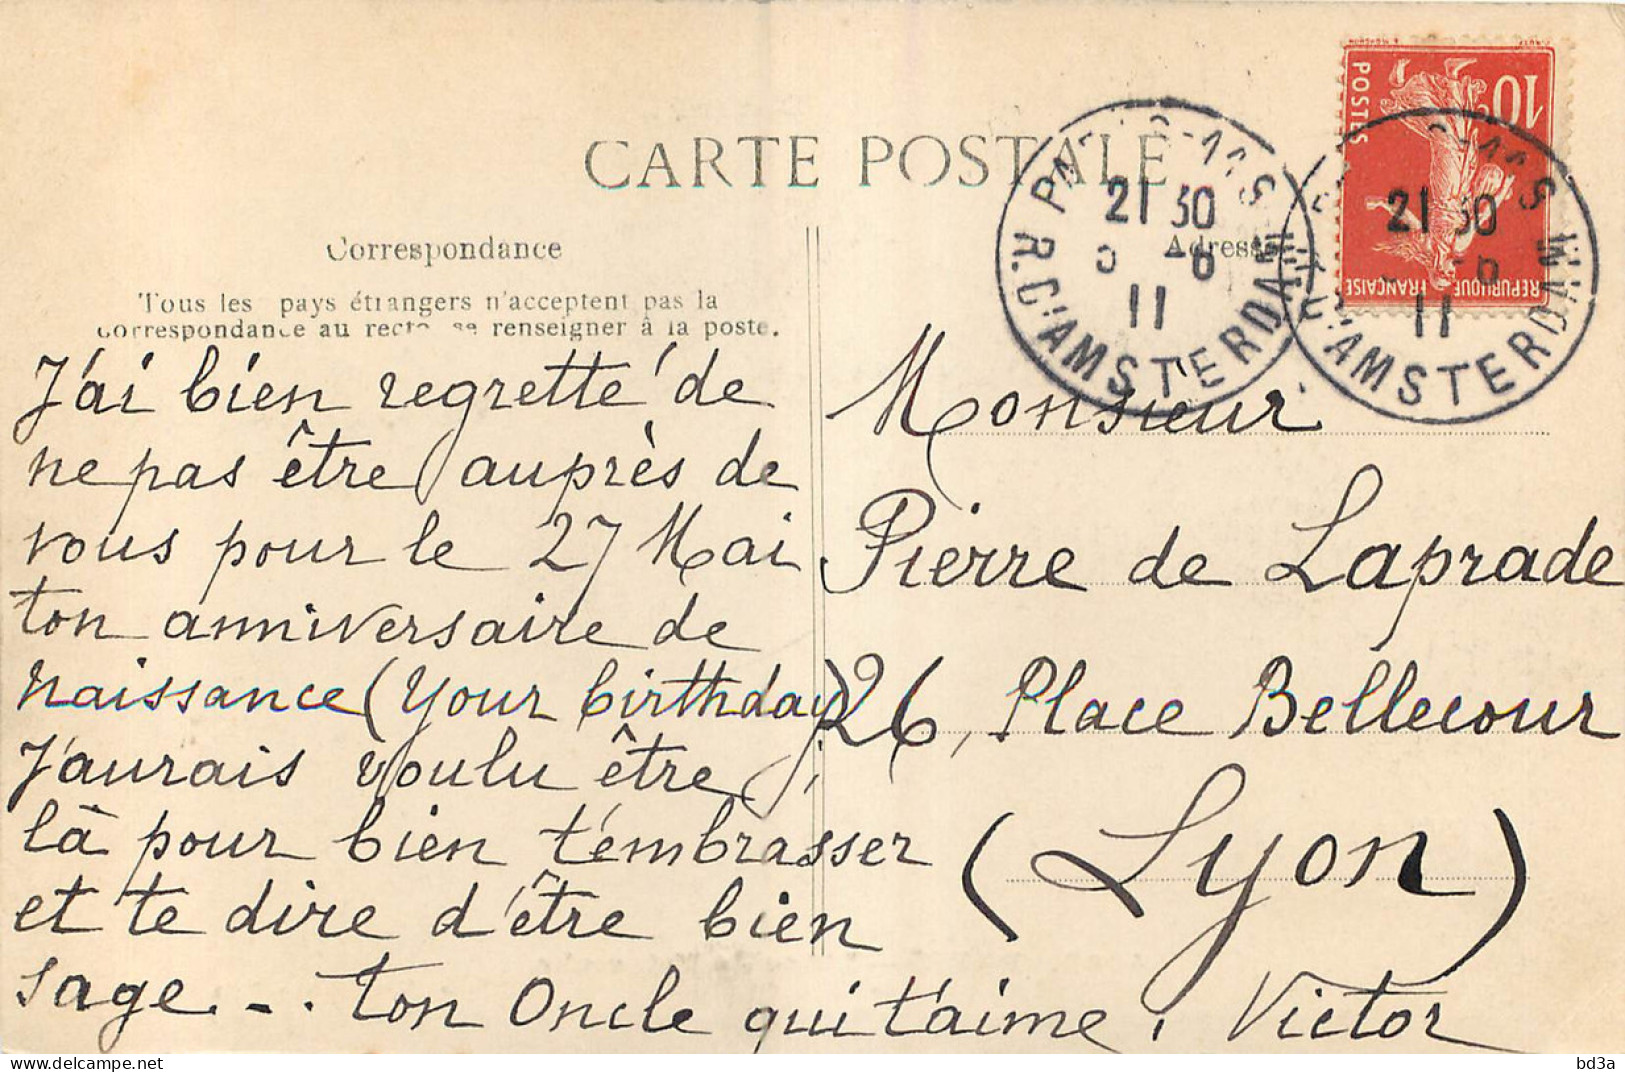 CARTE POSTALE
Correspondance
Tous les pays étrangers n'acceptent pas la
correspondance au recto se renseigner à la poste.
J'ai bien regretté de
ne pas être auprès de
vous pour le 27 Mai
ton anniversaire de
naissance (your birthday)
J'aurais voulu être
là pour bien t'embrasser
et te dire d'être bien
sage - . ton Oncle qui t'aime, Victor
Adresse
Monsieur
Pierre de Laprade
26, Place Bellecour
(Lyon)
21 30
6
11
R. D'AMSTERDAM
10c
POSTES
REPUBLIQUE FRANÇAISE
21 30
6
11
D'AMSTERDAM
bd3a